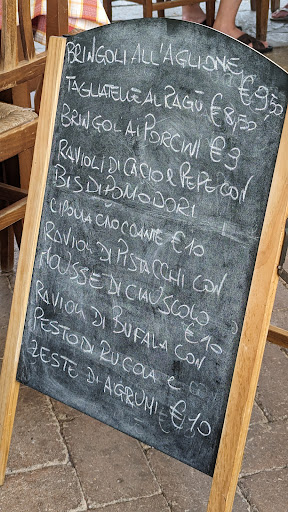 BRINGOLI ALL'AGLIONE €9,50
TAGLIATELLE AL RAGÙ €8,50
BRINGOLI AI PORCINI €9
RAVIOLI DI CACIO & PEPE CON
BIS DI POMODORI
CIPOLLA CROCCANTE €10
RAVIOLI DI PISTACCHI CON
MOUSSE DI CIAUSCOLO
€10
RAVIOLI DI BUFALA CON
PESTO DI RUCOLA E
ZESTE DI AGRUMI €10